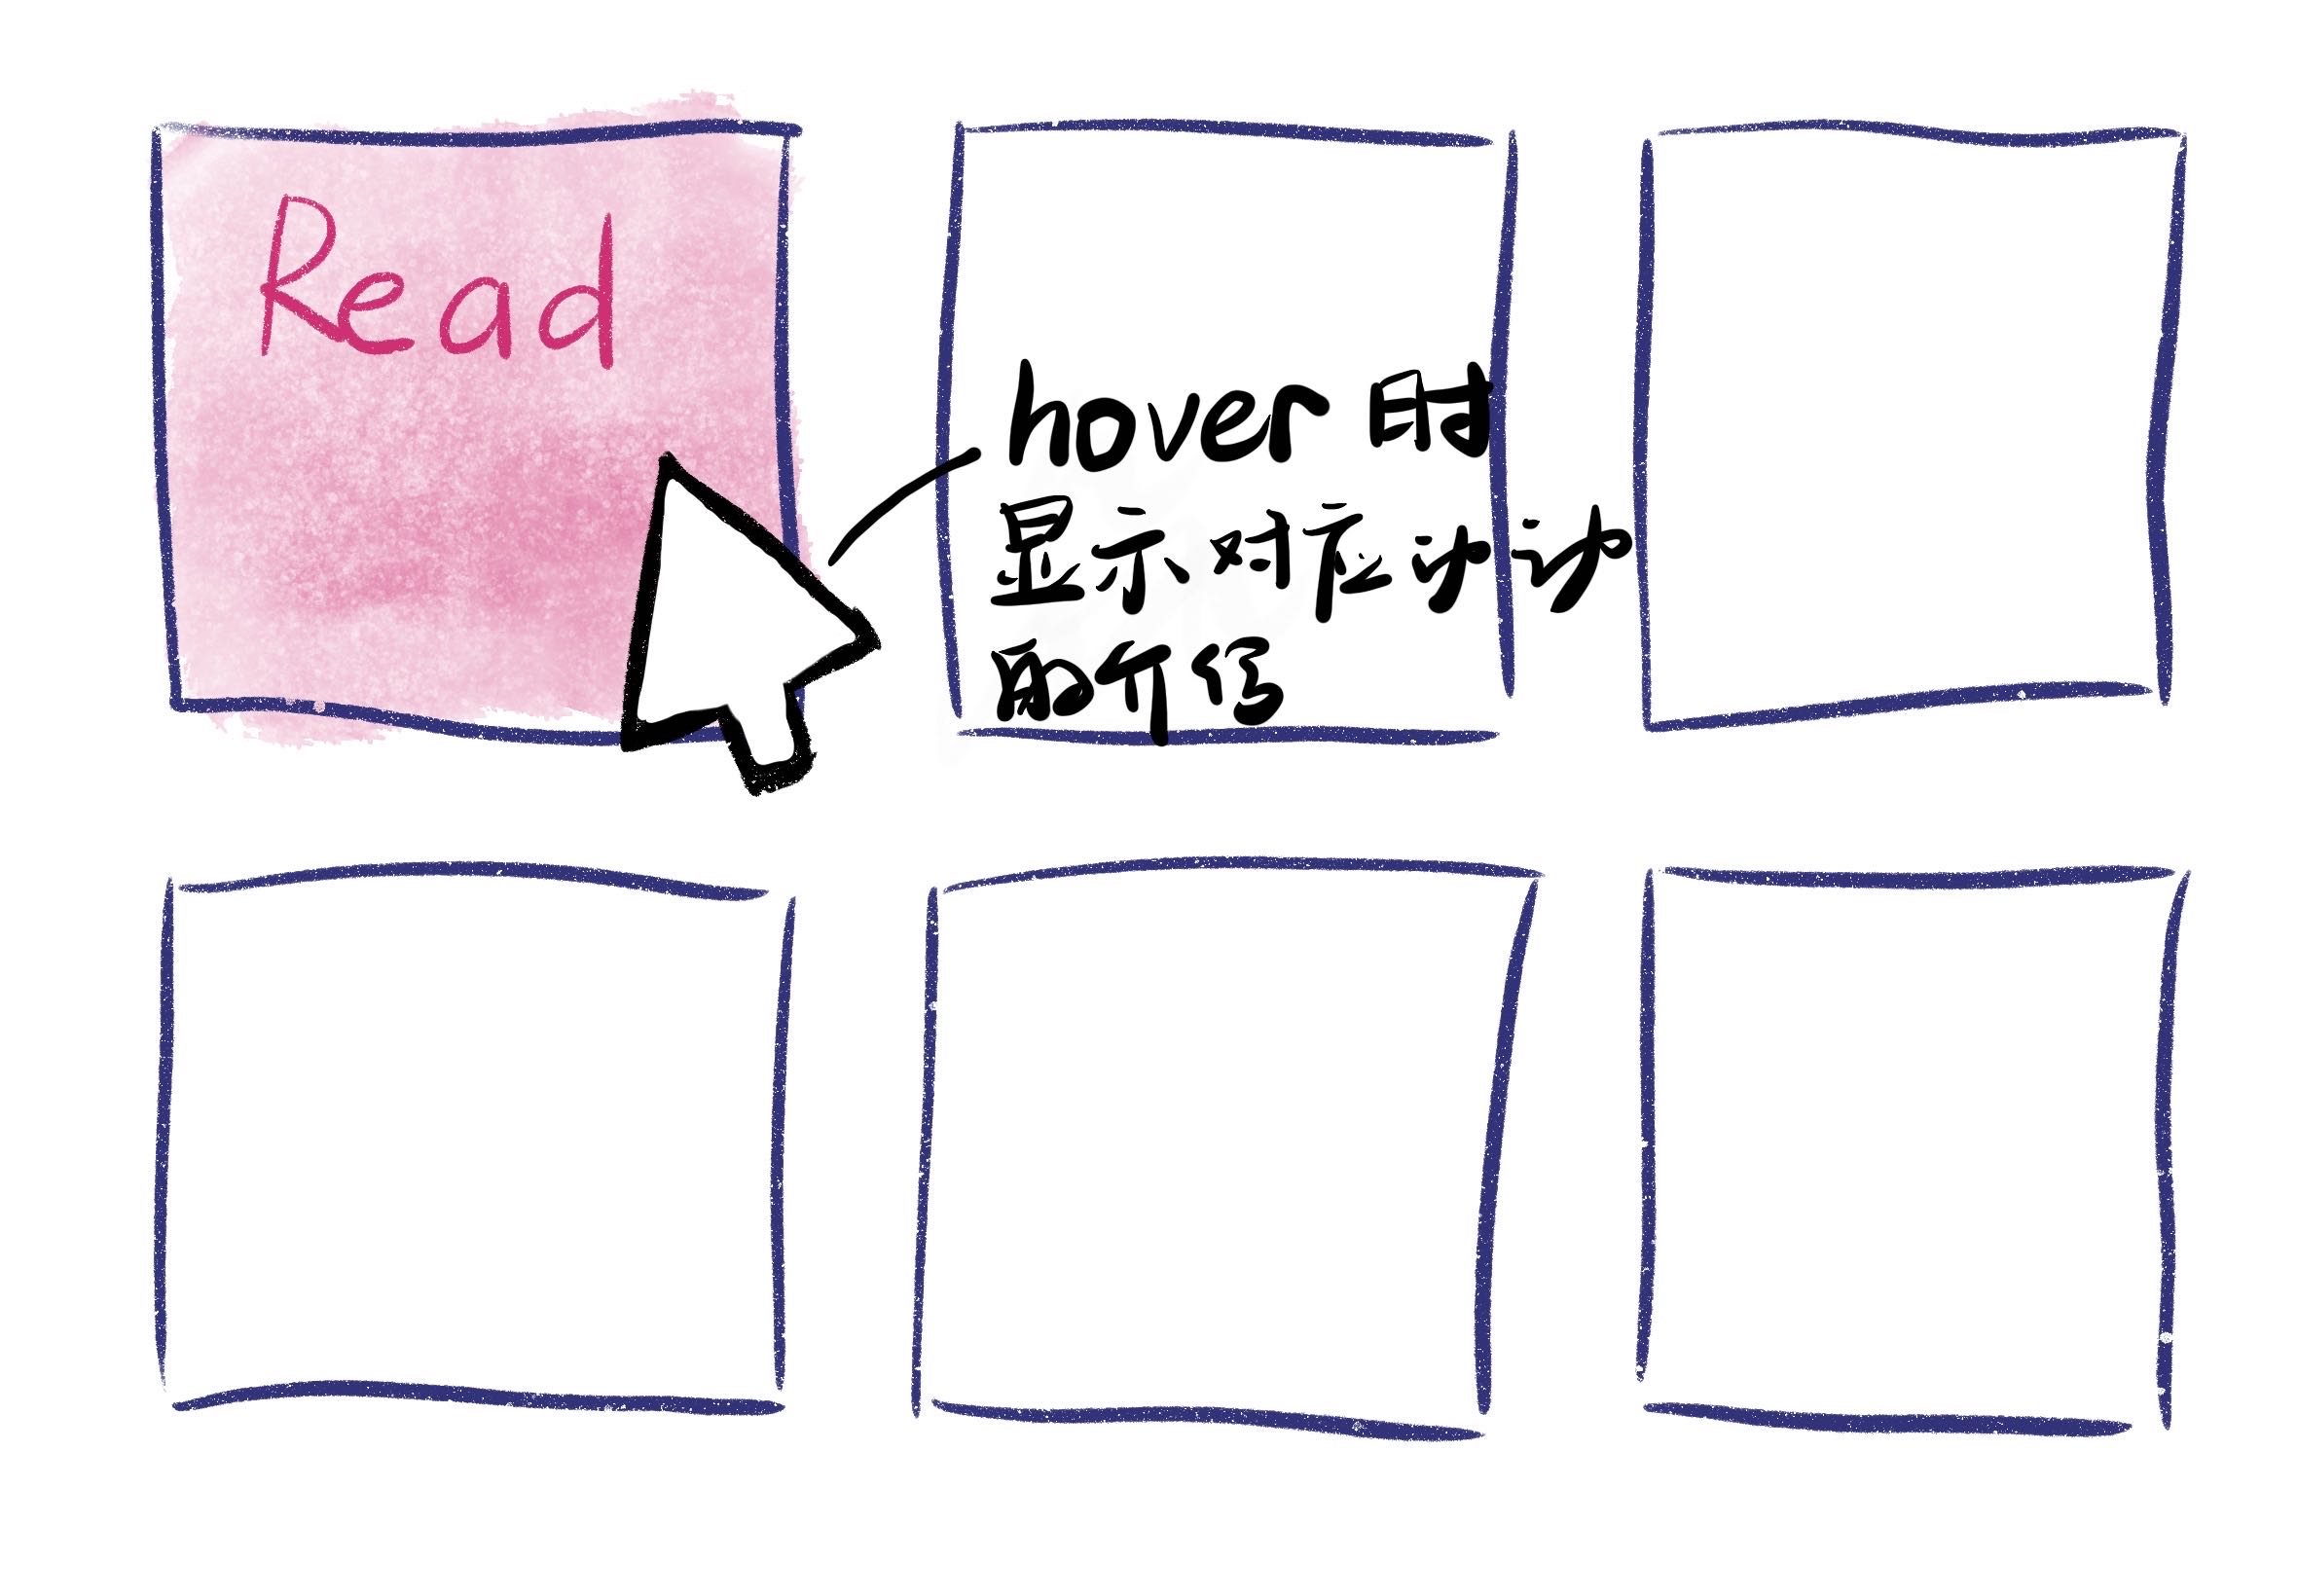 Read
hover 时
显示对应
的介绍